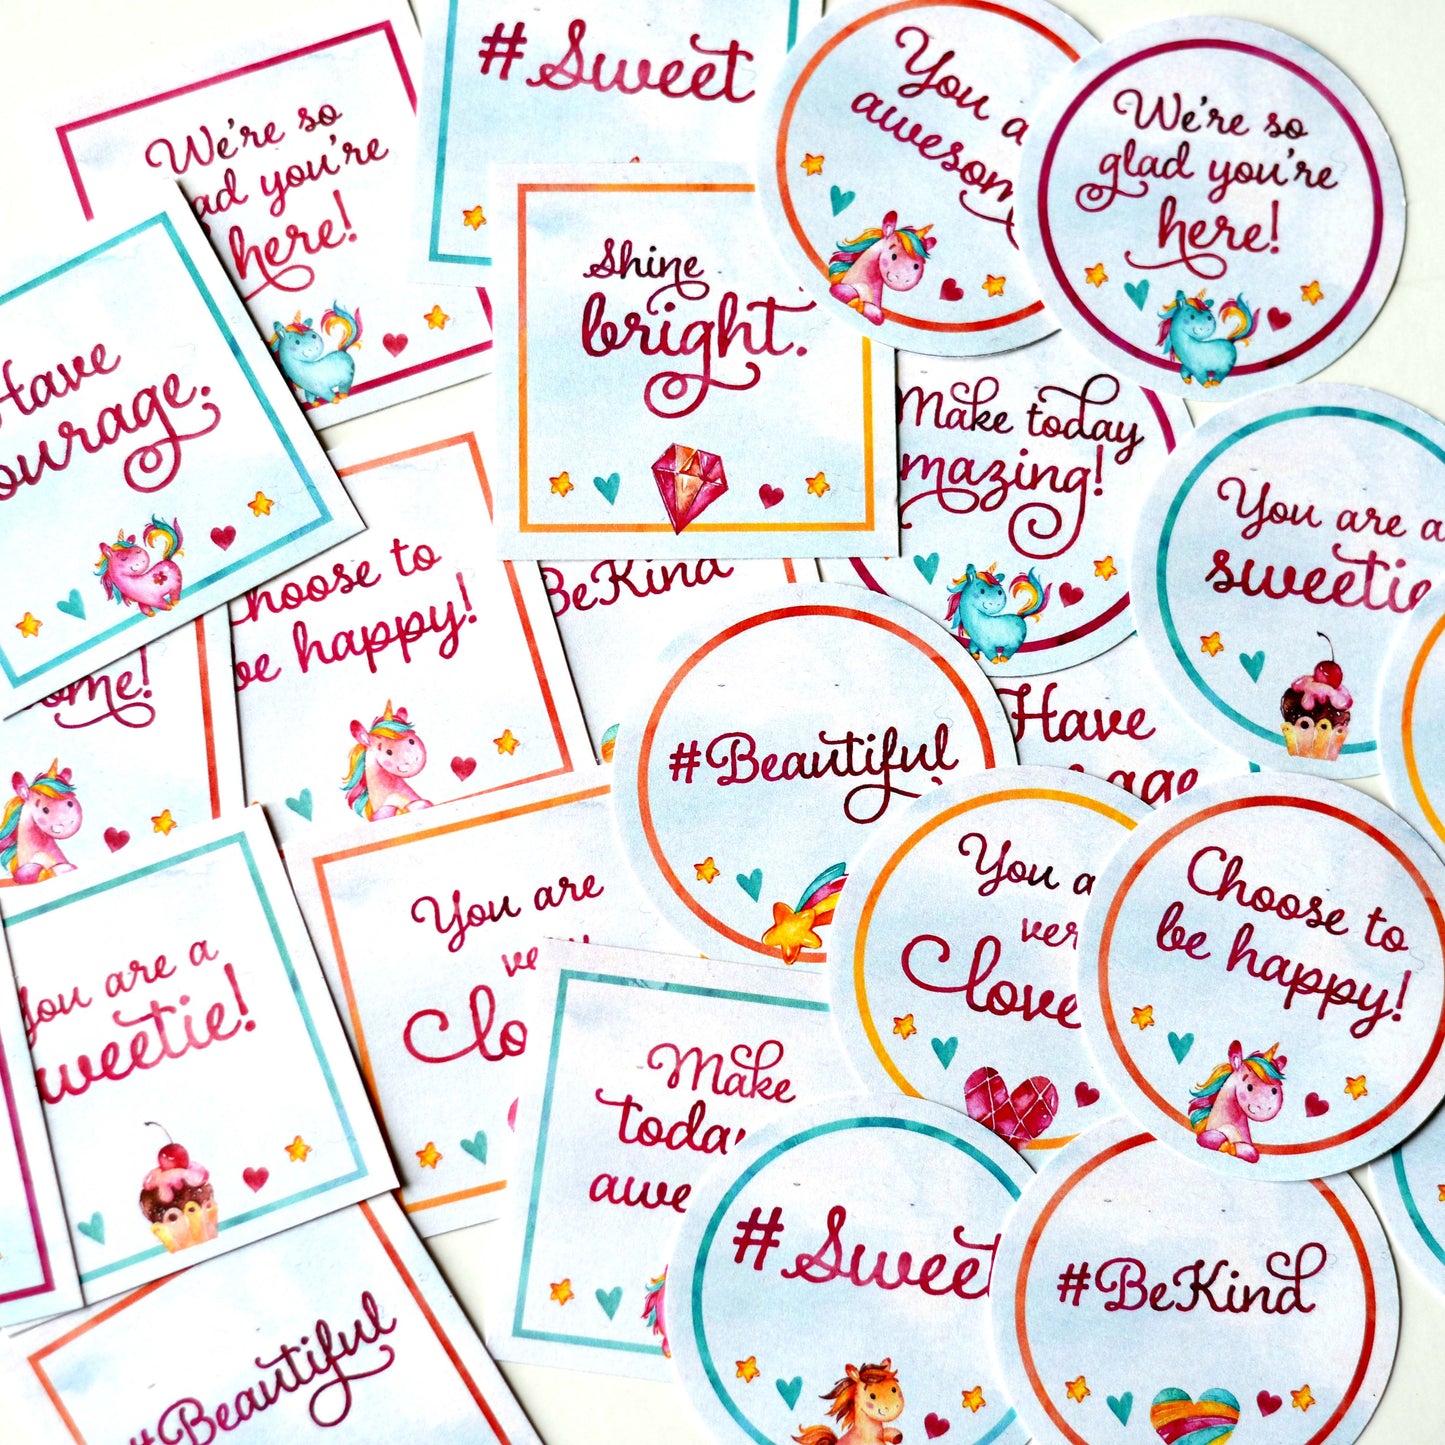 #Sweet
You a
awesom
We're so
glad you're
here!
We're so
ad you're
here!
Shine
bright.
Have
ourage.
Make today
mazing!
You are a
sweetie
Choose to
be happy!
BeKind
ome!
#Beautiful
Have
age
You are
very
lo
You a
ver
love
Choose to
be happy!
you are a
weetie!
Make
today
awe
#Sweet
#BeKind
#Beautiful